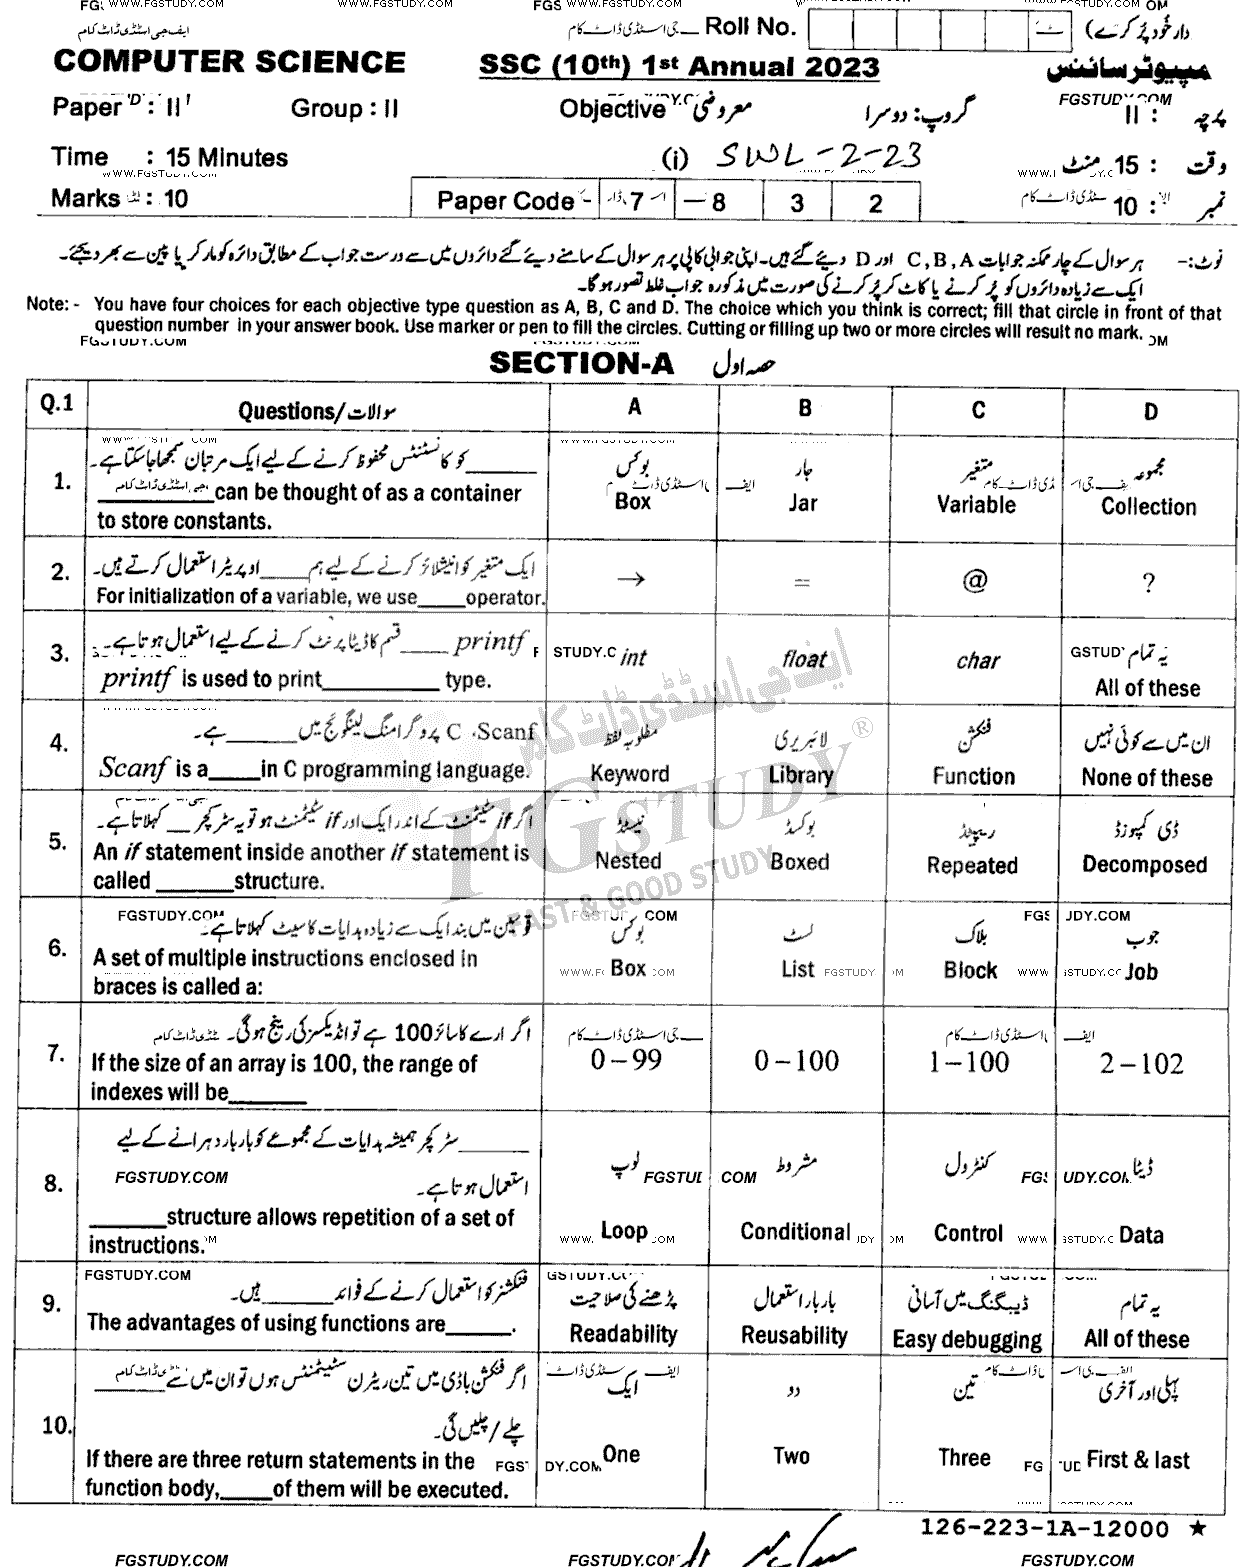 Roll No. دار خود پُر کرے)
COMPUTER SCIENCE SSC (10th) 1st Annual 2023 کمپیوٹر سائنس
Paper : II Group : II Objective معروضی گروپ: دوسرا پرچہ : II
Time : 15 Minutes (i) SWL-2-23 وقت : 15 منٹ
Marks : 10 Paper Code 7 8 3 2 نمبر : 10
نوٹ:- ہر سوال کے چار ممکنہ جوابات C,B,A اور D دیئے گئے ہیں۔ اپنی جوابی کاپی پر ہر سوال کے سامنے دیئے گئے دائروں میں سے درست جواب کے مطابق دائرہ کو مارکر یا پین سے بھر دیجئے۔
ایک سے زیادہ دائروں کو پُر کرنے یا کاٹ کر پُر کرنے کی صورت میں مذکورہ جواب غلط تصور ہو گا۔
Note: - You have four choices for each objective type question as A, B, C and D. The choice which you think is correct; fill that circle in front of that
question number in your answer book. Use marker or pen to fill the circles. Cutting or filling up two or more circles will result no mark.
SECTION-A حصہ اول
Q.1 Questions/سوالات A B C D
1. ______ کو کانسٹنٹس محفوظ کرنے کے لیے ایک مرتبان سمجھا جا سکتا ہے۔ بوکس جار متغیر مجموعہ
______can be thought of as a container Box Jar Variable Collection
to store constants.
2. ایک متغیر کو انیشلائز کرنے کے لیے ہم ____ اوپریٹر استعمال کرتے ہیں۔ → = @ ?
For initialization of a variable, we use____operator.
3. printf ____ قسم کا ڈیٹا پرنٹ کرنے کے لیے استعمال ہوتا ہے۔ int float char یہ تمام
printf is used to print________ type. All of these
4. Scanf، C پروگرامنگ لینگوئج میں ____ ہے۔ مطلوبہ لفظ لائبریری فنکشن ان میں سے کوئی نہیں
Scanf is a____in C programming language. Keyword Library Function None of these
5. اگر if سٹیٹمنٹ کے اندر ایک اور if سٹیٹمنٹ ہو تو یہ سٹرکچر __ کہلاتا ہے۔ نیسٹڈ بوکسڈ ریپیٹڈ ڈی کمپوزڈ
An if statement inside another if statement is Nested Boxed Repeated Decomposed
called ______structure.
6. قوسین میں بند ایک سے زیادہ ہدایات کا سیٹ کہلاتا ہے: بوکس لسٹ بلاک جوب
A set of multiple instructions enclosed in Box List Block Job
braces is called a:
7. اگر ارے کا سائز 100 ہے تو انڈیکسز کی رینج ہوگی۔ 0 – 99 0 – 100 1 – 100 2 – 102
If the size of an array is 100, the range of
indexes will be______
8. ______ سٹرکچر ہمیشہ ہدایات کے مجموعے کو بار بار دہرانے کے لیے لوپ مشروط کنٹرول ڈیٹا
استعمال ہوتا ہے۔
______structure allows repetition of a set of Loop Conditional Control Data
instructions.
9. فنکشنز کو استعمال کرنے کے فوائد ______ ہیں۔ پڑھنے کی صلاحیت بار بار استعمال ڈیبگنگ میں آسانی یہ تمام
The advantages of using functions are______. Readability Reusability Easy debugging All of these
10. اگر فنکشن باڈی میں تین ریٹرن سٹیٹمنٹس ہوں تو ان میں سے ______ ایک دو تین پہلی اور آخری
چلے / چلیں گی۔
If there are three return statements in the One Two Three First & last
function body,____of them will be executed.
126-223-1A-12000 ★
ایف جی اسٹڈی ڈاٹ کام
FGSTUDY ®
FAST & GOOD STUDY
WWW.FGSTUDY.COM
FGSTUDY.COM FGSTUDY.COM FGSTUDY.COM